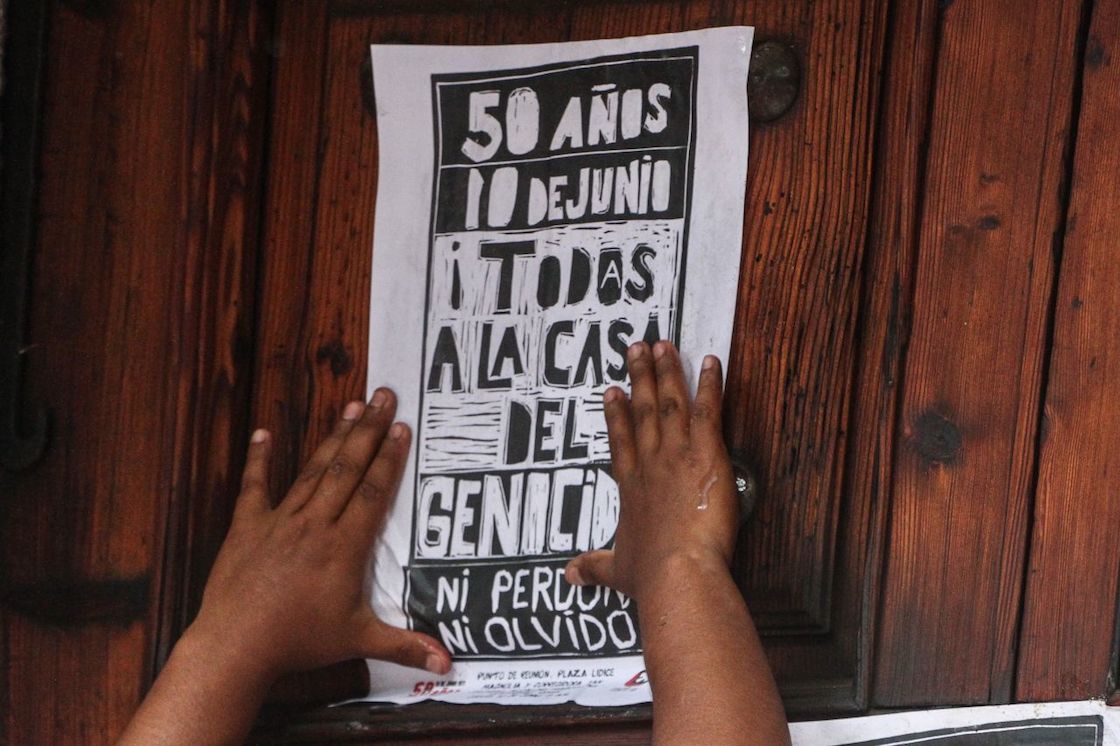 50 AÑOS
10 DE JUNIO
¡TODAS
A LA CASA
DEL
GENICID
Ni PERDON
Ni OLVIDO
PUNTO DE REUNIÓN. PLAZA LIDICE